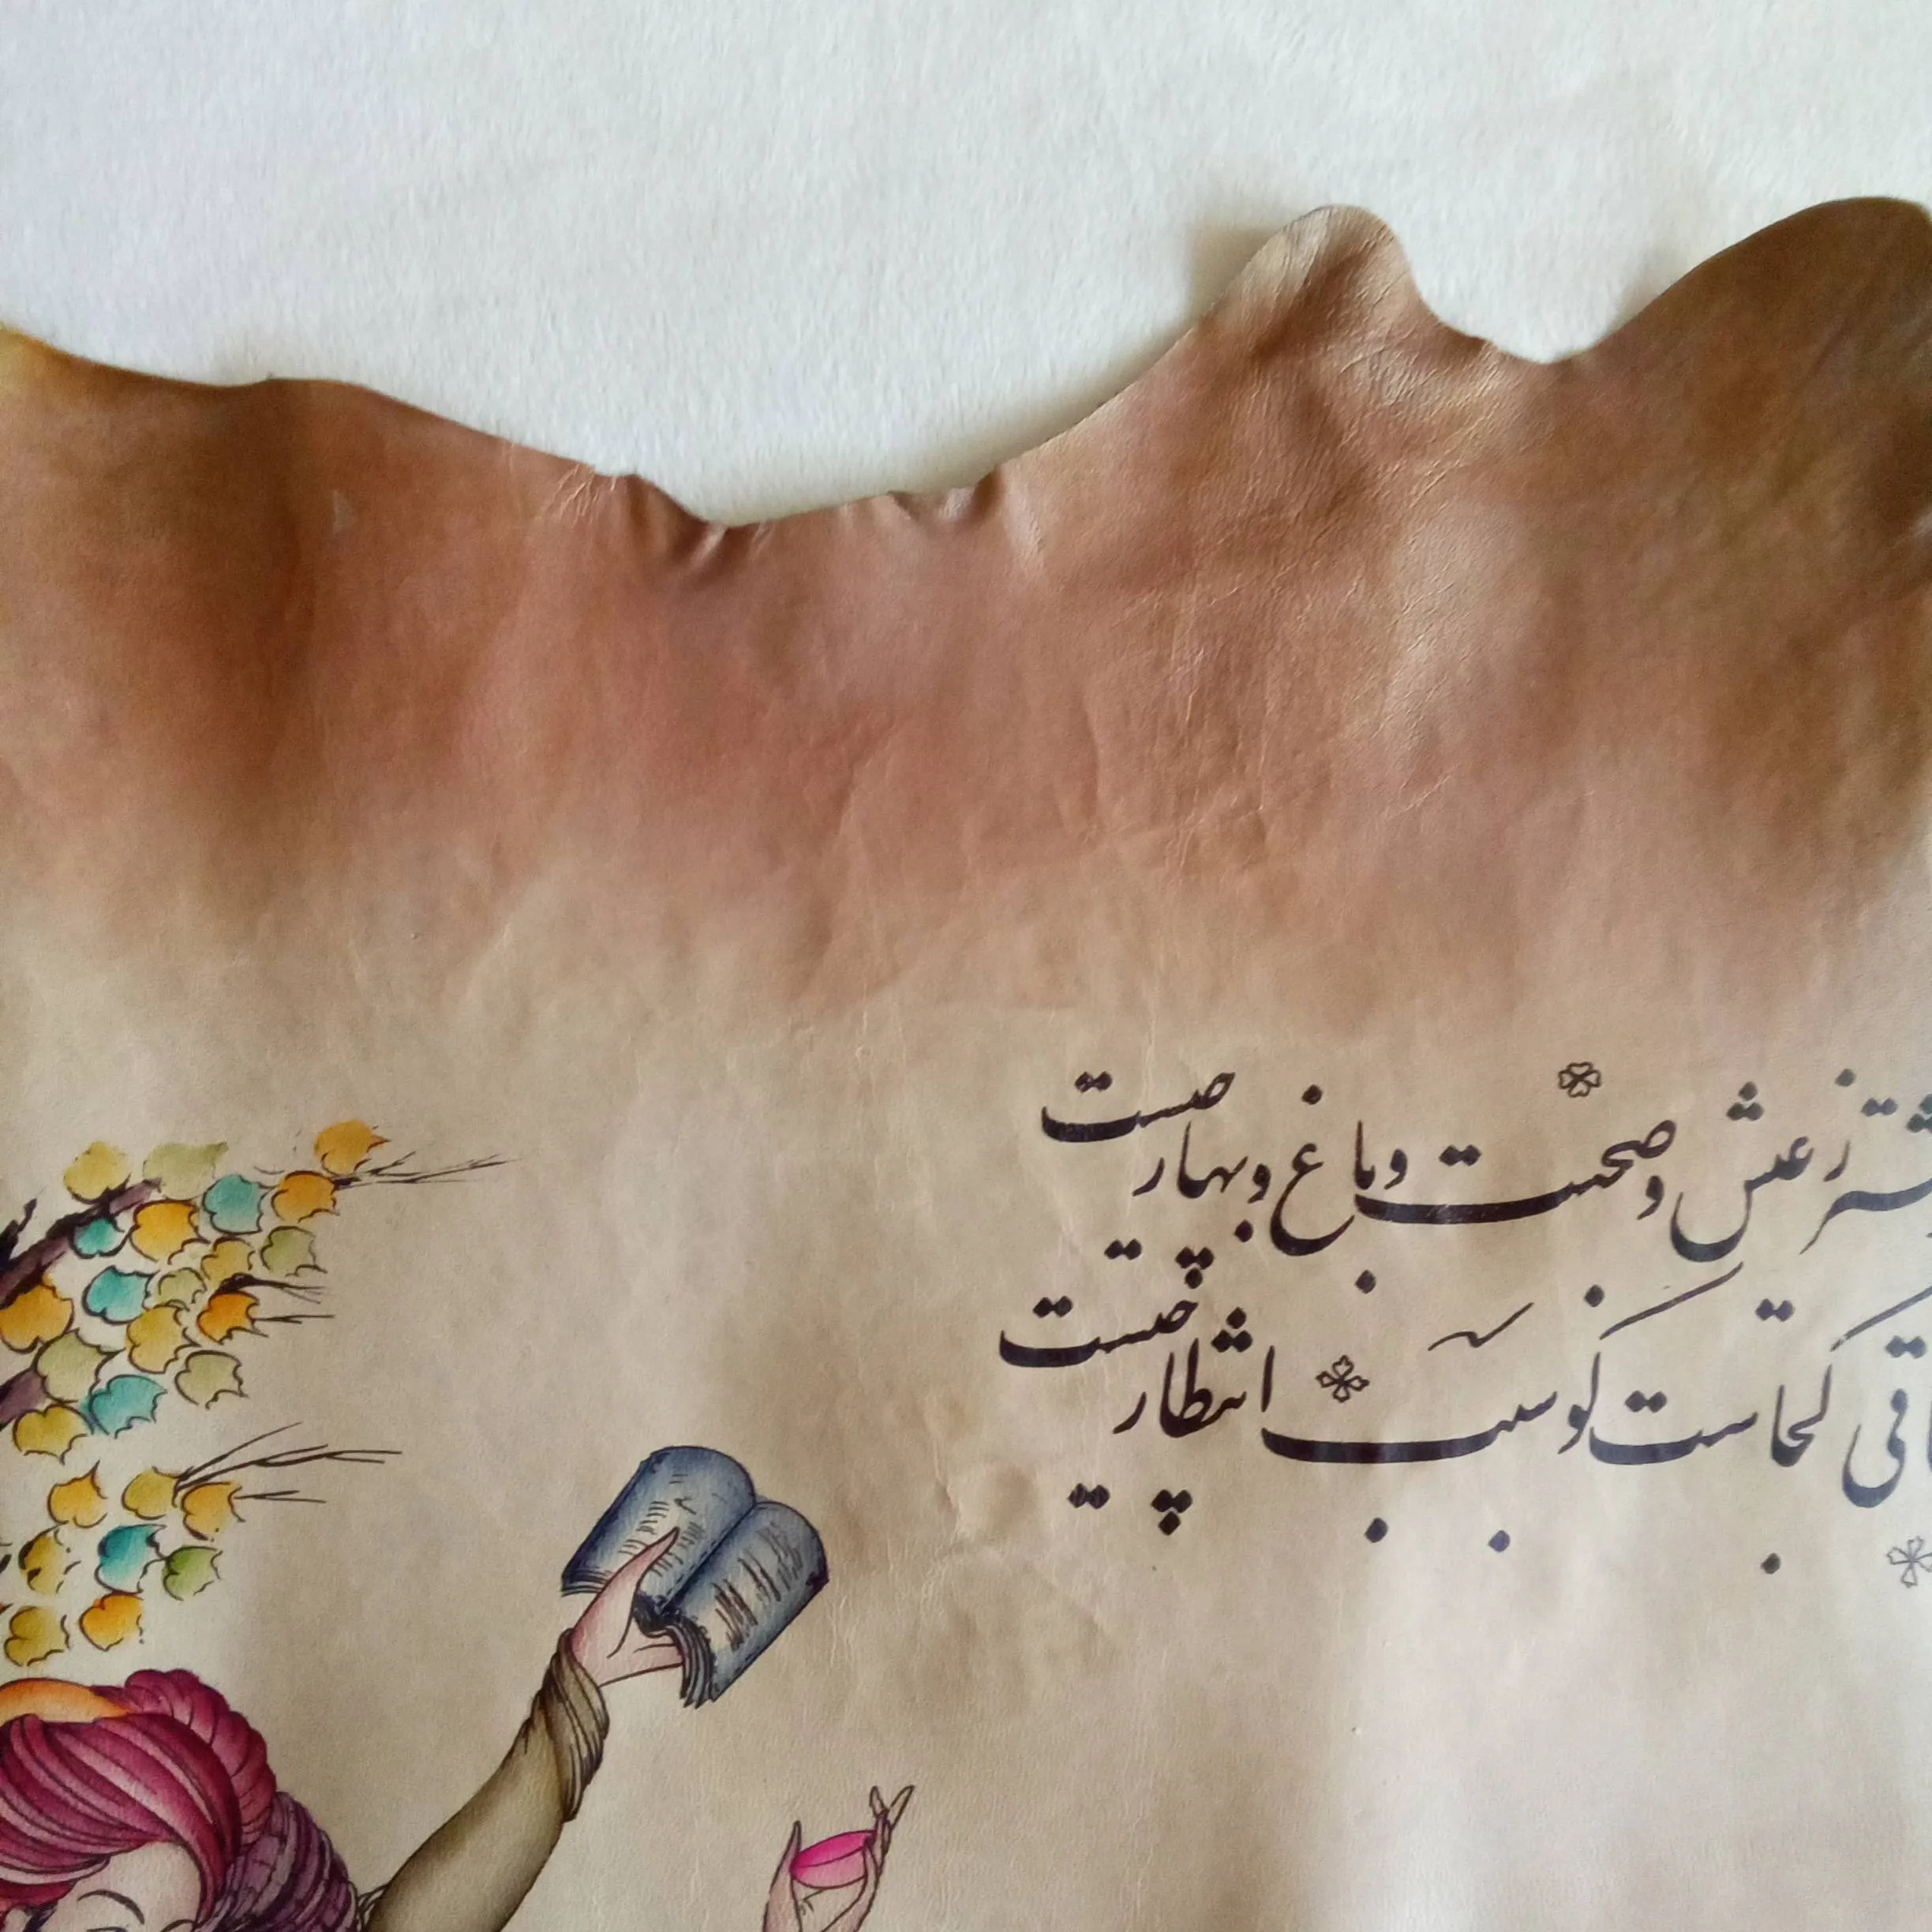 ز عیش و صحبت و باغ و بهار چیست
ساقی کجاست گو سبب انتظار چیست